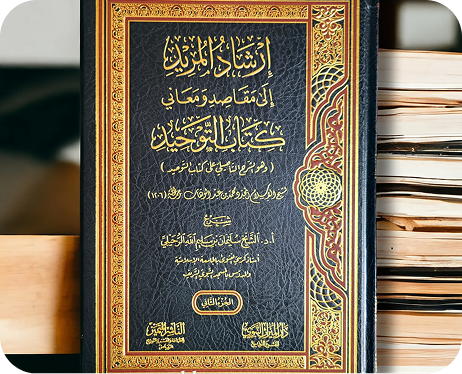 إرشاد المريد
إلى مقاصد ومعاني
كتاب التوحيد
( وهو الشرح التأصيلي على كتاب التوحيد )
شيخ الإسلام المجدد محمد بن عبد الوهاب رحمه الله (١٢٠٦)
شرح
أ.د. الشيخ سليمان بن سليم الله الرحيلي
أستاذ كرسي الفتوى بالجامعة الإسلامية
والمدرس بالمسجد النبوي الشريف
الجزء الثاني
دار الميراث النبوي
الناشر المتميز